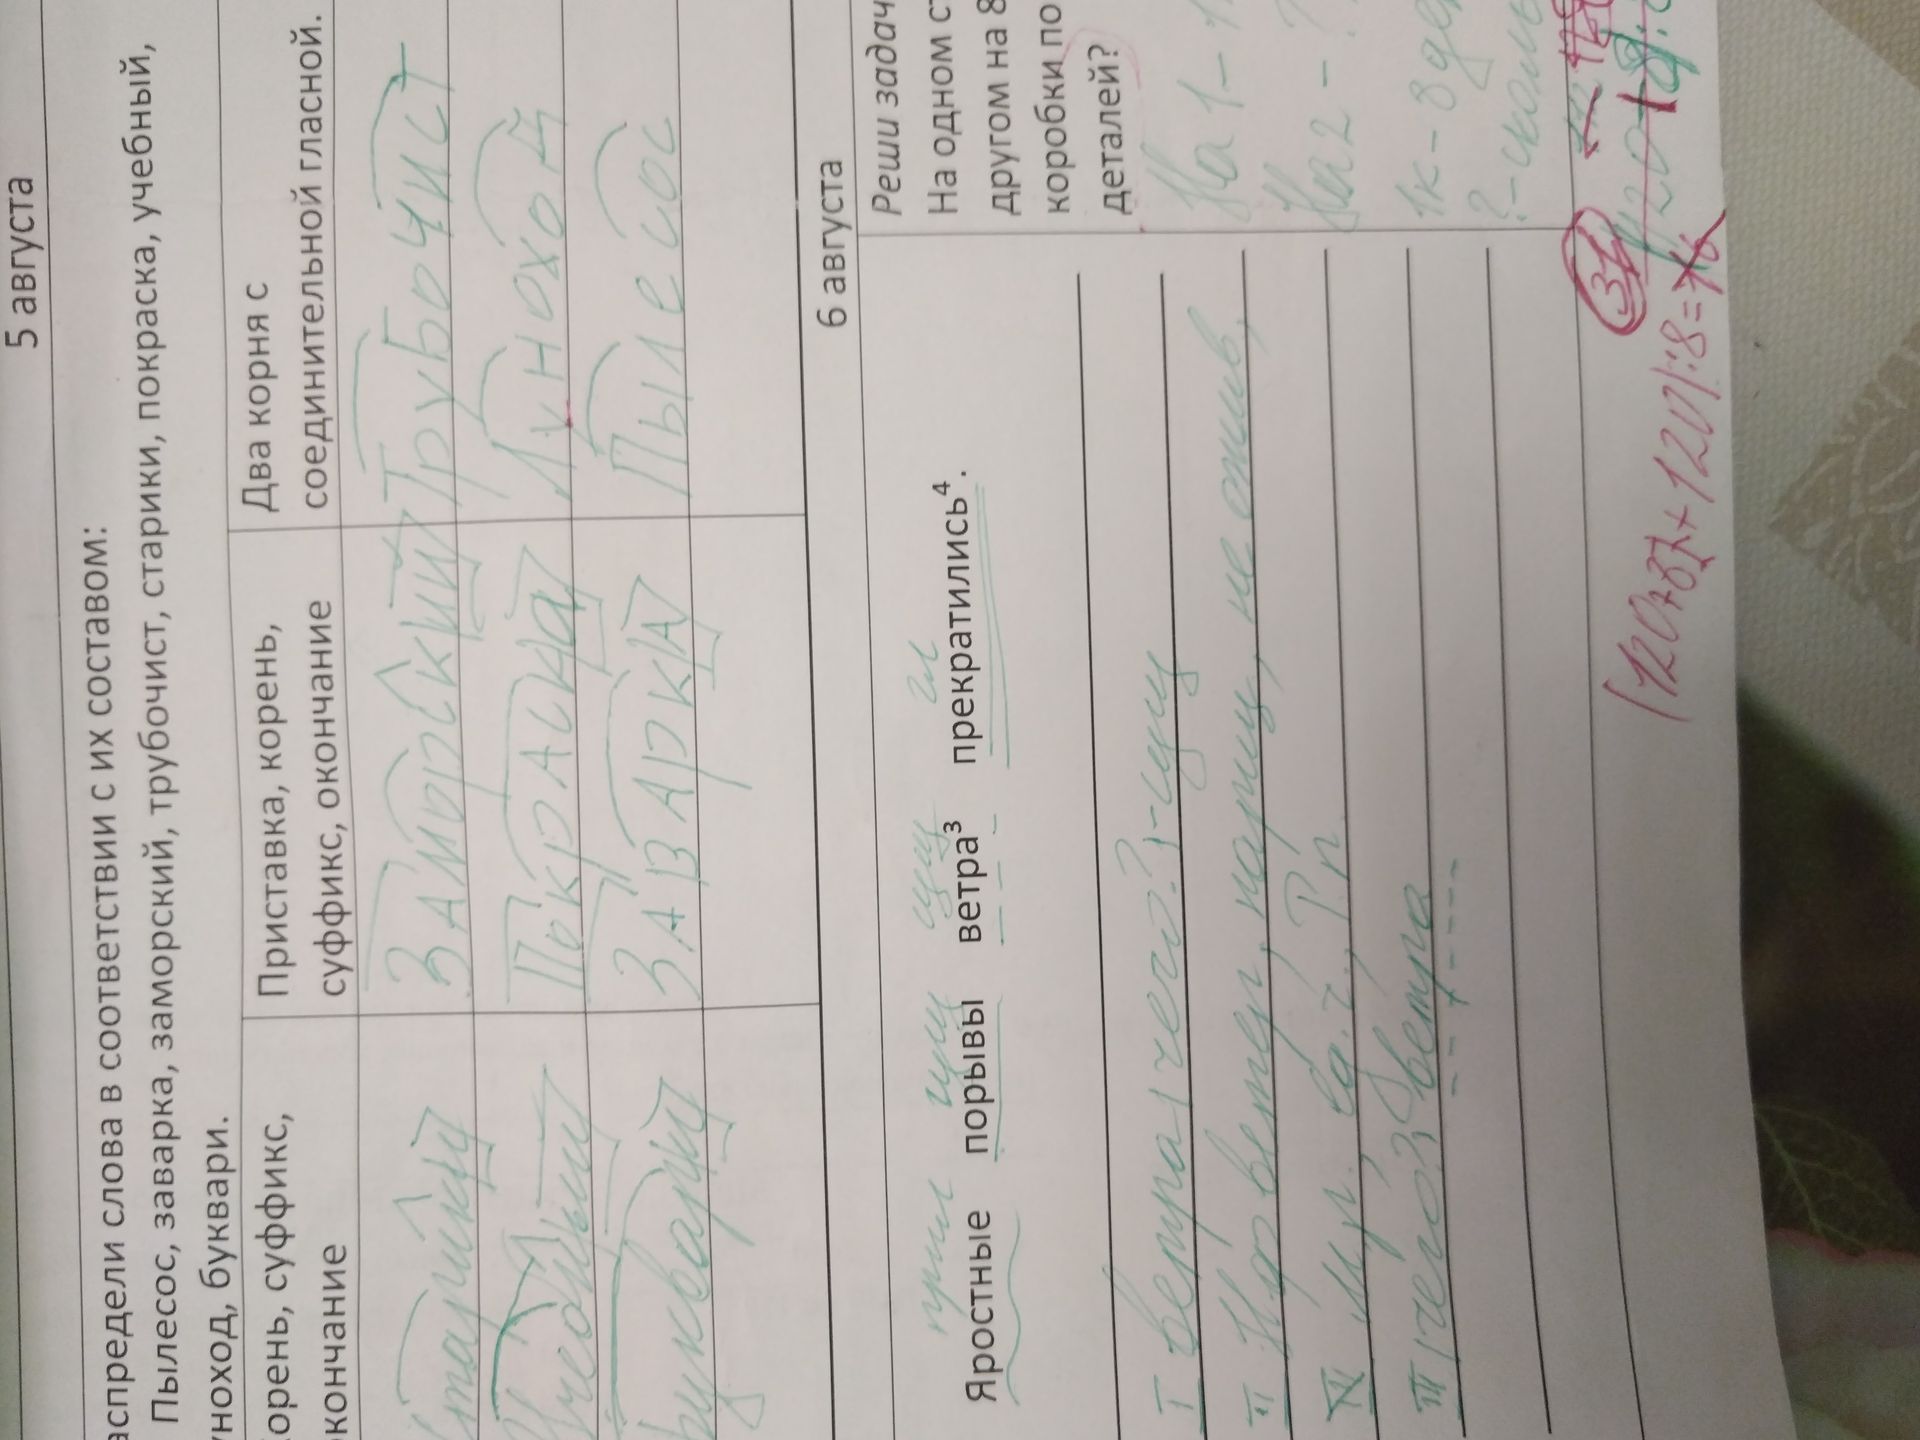 5 августа
аспредели слова в соответствии с их составом:
Пылесос, заварка, заморский, трубочист, старики, покраска, учебный,
уноход, буквари.
орень, суффикс,
кончание
Приставка, корень,
суффикс, окончание
Два корня с
соединительной гласной.
старики Заморский Трубочист
Учебный Покраска Луноход
буквари Заварка Пылесос
6 августа
прил сущ сущ гл
Яростные порывы ветра³ прекратились⁴.
I ветра (чего?)-сущ
II Нф ветер, нариц, не душ,
м.р., ед.ч., Рп
III (чего?) ветра
Реши задач
На одном с
другом на 8
коробки по
деталей?
На 1 -
На 2 - ?
1к - 8 де
? - сколь
(120+87+120):8=